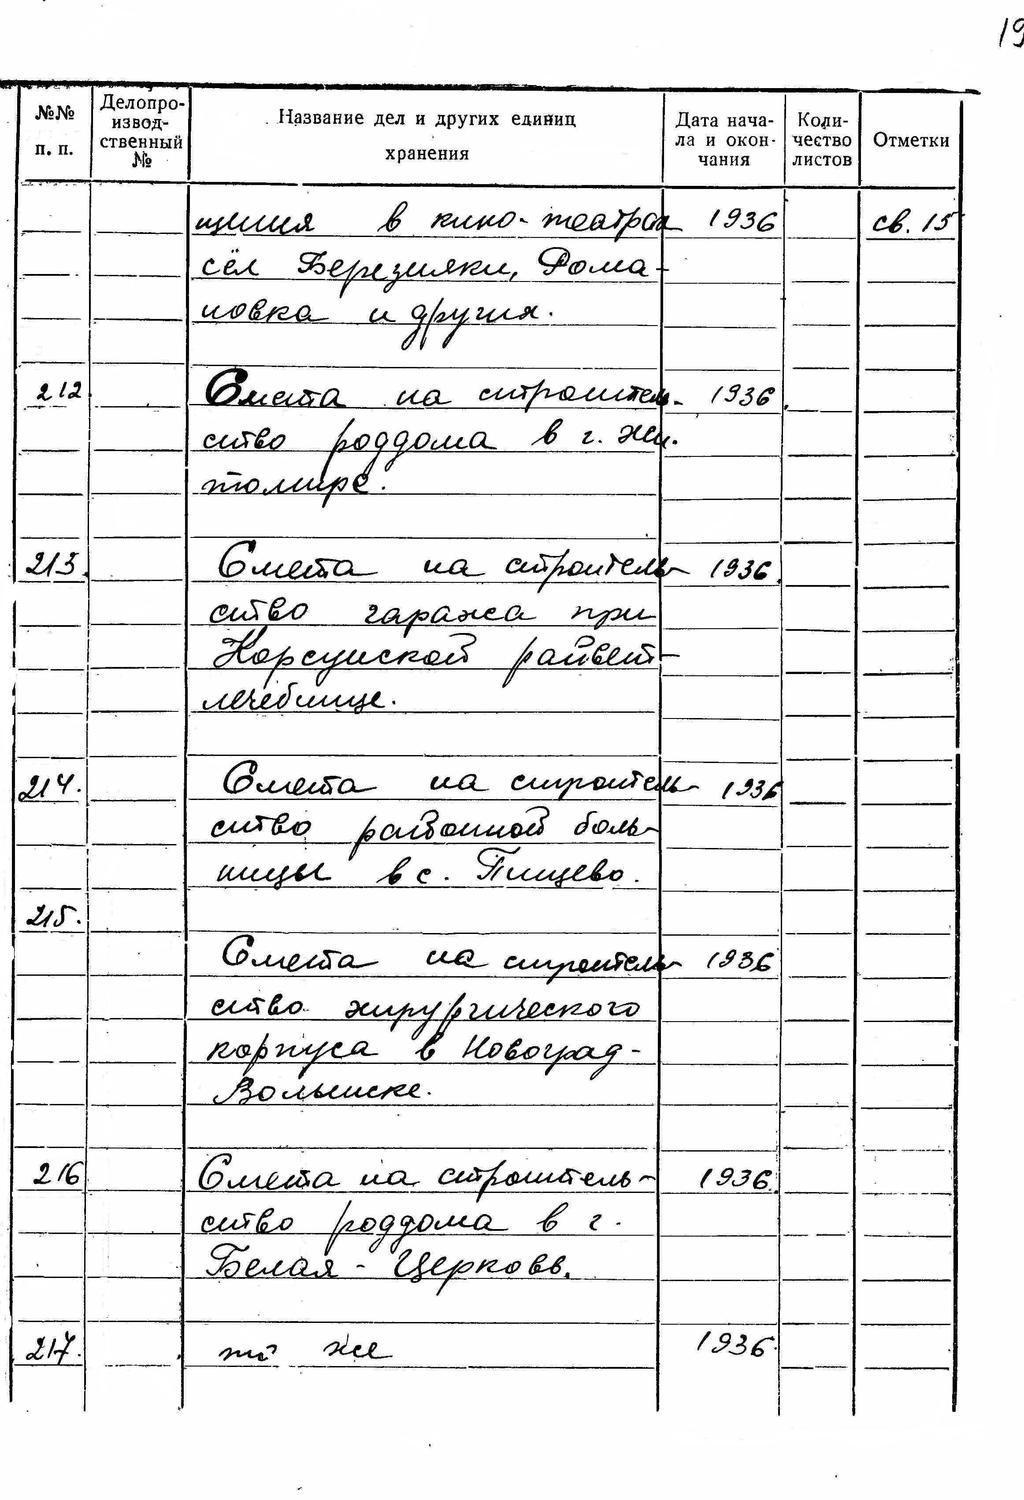 19
№№ п. п. Делопро-извод-ственный № Название дел и других единиц хранения Дата нача-ла и окон-чания Коли-чество листов Отметки
щения в кино-театрах 1936 св. 15
сёл Березняки, Рома-
новка и других.
212 Смета на строитель- 1936
ство роддома в г. Жи-
томире.
213. Смета на строитель- 1936
ство гаража при
Корсунской райвет-
лечебнице.
214. Смета на строитель- 1936
ство районной боль-
ницы в с. Пищево.
215.
Смета на строитель- 1936
ство хирургического
корпуса в Новоград-
Волынске.
216 Смета на строитель- 1936.
ство роддома в г.
Белая-Церковь.
217. то же 1936.